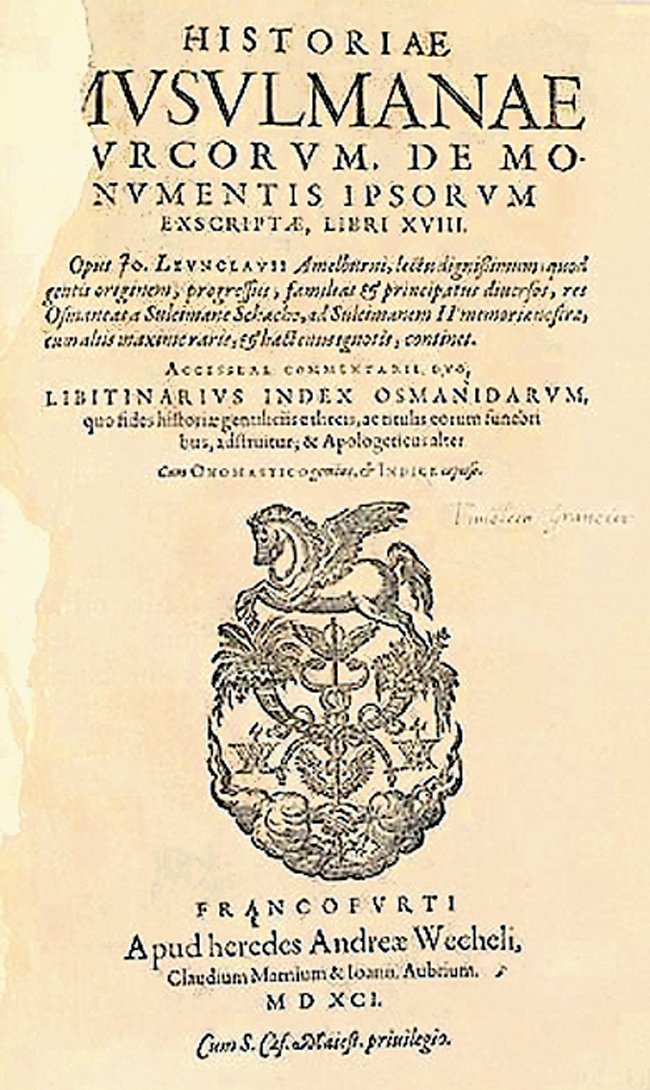 HISTORIAE
MVSVLMANAE
VRCORVM, DE MO-
NVMENTIS IPSORVM
EXSCRIPTÆ, LIBRI XVIII.
Opus Jo. LEVNCLAVII Amelburni, lectu dignissimum: quod
gentis originem, progressus, familias & principatus diuersos, res
Osmaneas a Suleimane Schacho, ad Suleimanem II memoriæ nostræ,
cum aliis maxime raris, & hactenus ignotis, continet.
ACCESSERE COMMENTARII DVO,
LIBITINARIVS INDEX OSMANIDARVM,
quo fides historiæ gentiliciis ethecis, ac titulis eorum funebri
bus, adstruitur; & Apologeticus alter
Cum ONOMASTICO gemino, & INDICE copioso.
FRANCOFVRTI
Apud heredes Andreæ Wecheli,
Claudium Marnium & Ioann. Aubrium.
M D XCI.
Cum S. Cæs. Maiest. priuilegio.